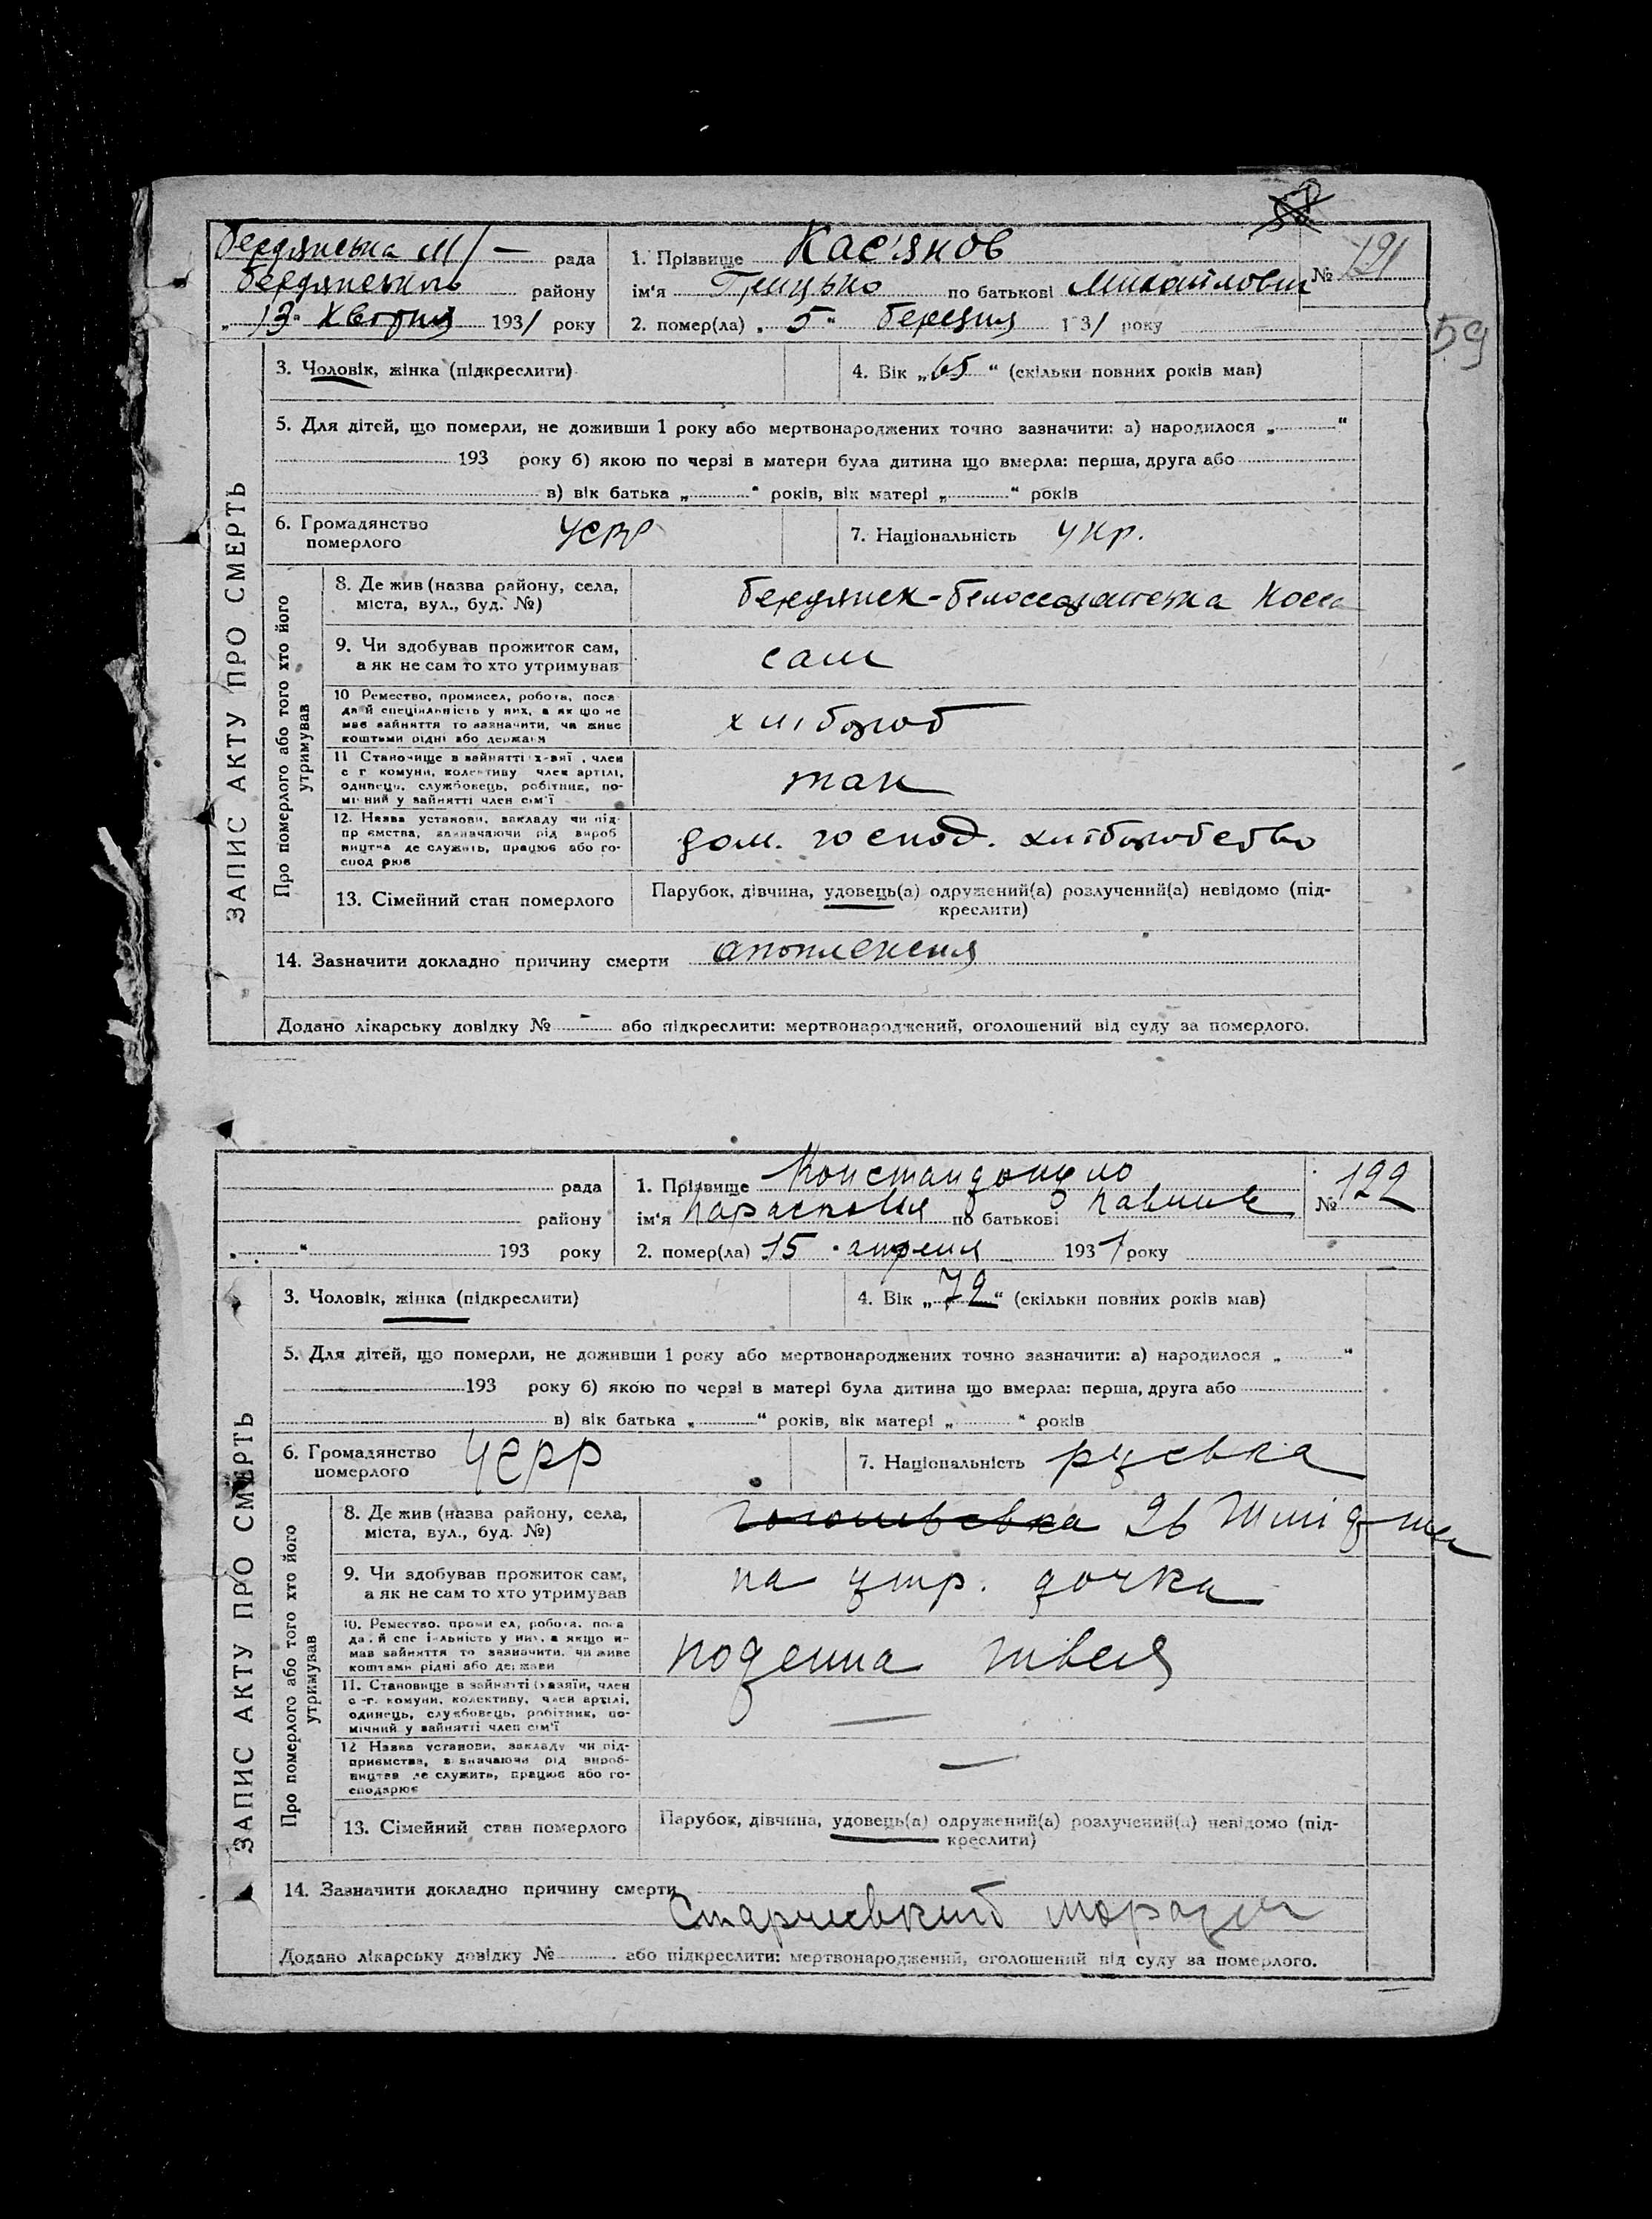 59
Бердянська М/ — рада
Бердянського району
„13“ Квітня 1931 року
1. Прізвище Кас'янов
№ 121
ім'я Грицько по батькові Михайлович
2. помер(ла) „5“ березня 1931 року
59
ЗАПИС АКТУ ПРО СМЕРТЬ
3. Чоловік, жінка (підкреслити)
4. Вік „65“ (скільки повних років мав)
5. Для дітей, що померли, не доживши 1 року або мертвонароджених точно зазначити: а) народилося „ “
193 року б) якою по черзі в матери була дитина що вмерла: перша, друга або
в) вік батька „ “ років, вік матері „ “ років
6. Громадянство померлого УСРР
7. Національність укр.
Про померлого або того хто його утримував
8. Де жив (назва району, села,
міста, вул., буд. №)
Бердянск-
9. Чи здобував прожиток сам,
а як не сам то хто утримував
сам
10 Ремество, промисел, робота, поса-
да й спеціяльність у них, а як що не
має зайняття то зазначити, чи живе
коштами рідні або держави
хлібороб
11 Становище в зайнятті х-вні, член
с г комуни, колективу член артілі,
одинець, службовець, робітник, по-
мічний у зайнятті член сім'ї
так
12. Назва установи, закладу чи під-
приємства, зазначаючи рід вироб
ництва де служить, працює або го-
спод рює
дом. господ. хліборобство
13. Сімейний стан померлого
Парубок, дівчина, удовець(а) одружений(а) розлучений(а) невідомо (під-
креслити)
14. Зазначити докладно причину смерти апоплексия
Додано лікарську довідку № - або підкреслити: мертвонароджений, оголошений від суду за померлого.
рада
району
„ “ 193 року
1. Прізвище
№ 122
ім'я Парасковия по батькові Павлив
2. помер(ла) 15 апреля 1931 року
ЗАПИС АКТУ ПРО СМЕРТЬ
3. Чоловік, жінка (підкреслити)
4. Вік „72“ (скільки повних років мав)
5. Для дітей, що померли, не доживши 1 року або мертвонароджених точно зазначити: а) народилося „ “
193 року б) якою по черзі в матері була дитина що вмерла: перша, друга або
в) вік батька „ “ років, вік матері „ “ років
6. Громадянство померлого УСРР
7. Національність руська
Про померлого або того хто його утримував
8. Де жив (назва району, села,
міста, вул., буд. №)
26 Шмідта
9. Чи здобував прожиток сам,
а як не сам то хто утримував
на утр. дочка
10. Ремество, проми ел, робота, поса
да й спе іяльність у них, а якщо н-
мав зайняття то зазначити, чи живе
коштами рідні або держави
поденна швея
11. Становище в зайнятті (хазяїн, член
с-г. комуни, колективу, член артілі,
одинець, службовець, робітник, по-
мічний у зайнятті член сім'ї
—
12 Назва установи, закладу чи під-
приємства, зазначаючи рід вироб-
ництва де служить, працює або го-
сподарює
—
13. Сімейний стан померлого
Парубок, дівчина, удовець(а) одружений(а) розлучений(а) невідомо (під-
креслити)
14. Зазначити докладно причину смерти
Старчевкий маразм
Додано лікарську довідку № або підкреслити: мертвонароджений, оголошений від суду за померлого.